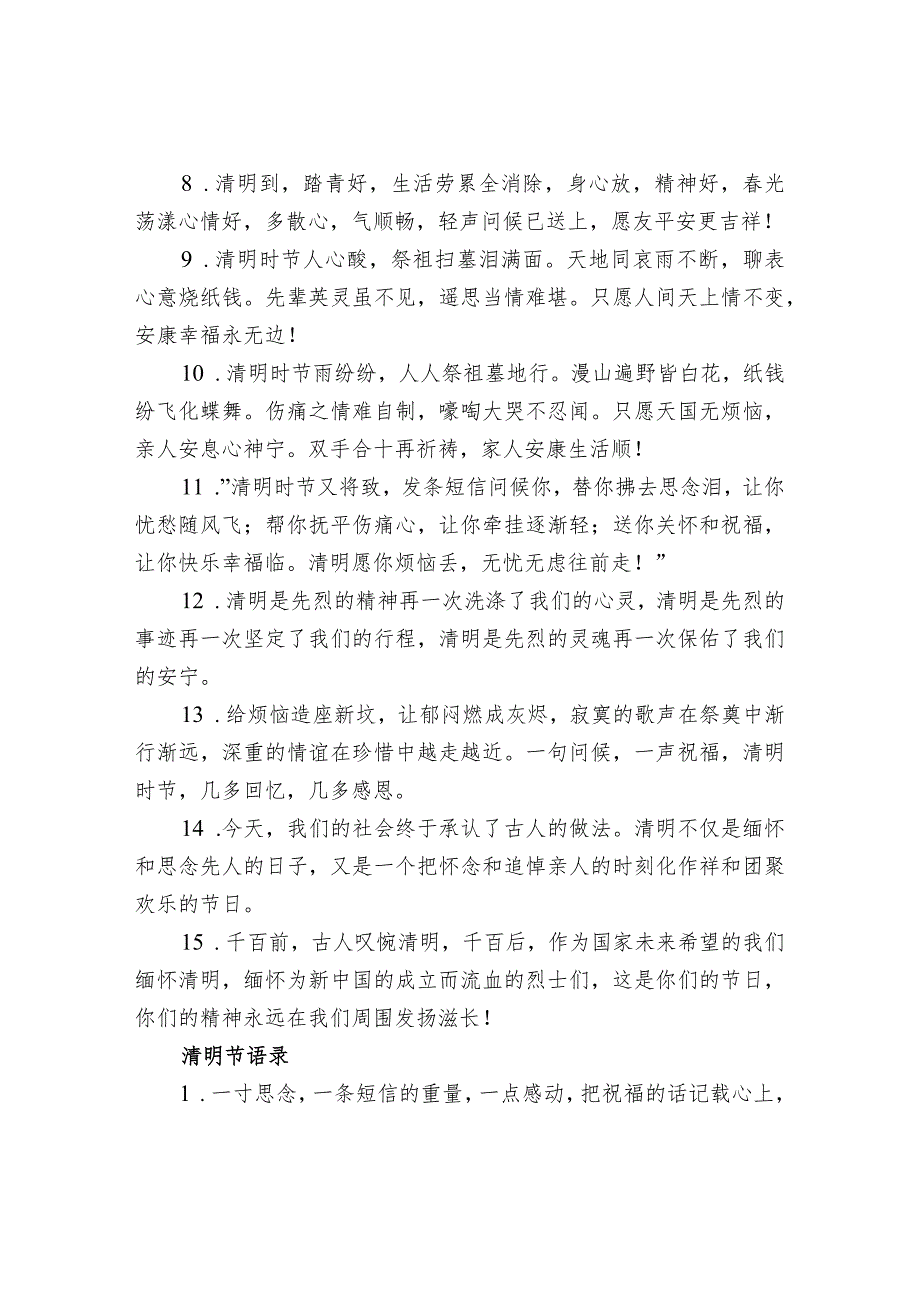 8 .清明到，踏青好，生活劳累全消除，身心放，精神好，春光
荡漾心情好，多散心，气顺畅，轻声问候已送上，愿友平安更吉祥！
9 .清明时节人心酸，祭祖扫墓泪满面。天地同哀雨不断，聊表
心意烧纸钱。先辈英灵虽不见，遥思当情难堪。只愿人间天上情不变，
安康幸福永无边！
10 .清明时节雨纷纷，人人祭祖墓地行。漫山遍野皆白花，纸钱
纷飞化蝶舞。伤痛之情难自制，嚎啕大哭不忍闻。只愿天国无烦恼，
亲人安息心神宁。双手合十再祈祷，家人安康生活顺！
11 .”清明时节又将致，发条短信问候你，替你拂去思念泪，让你
忧愁随风飞；帮你抚平伤痛心，让你牵挂逐渐轻；送你关怀和祝福，
让你快乐幸福临。清明愿你烦恼丢，无忧无虑往前走！”
12 .清明是先烈的精神再一次洗涤了我们的心灵，清明是先烈的
事迹再一次坚定了我们的行程，清明是先烈的灵魂再一次保佑了我们
的安宁。
13 .给烦恼造座新坟，让郁闷燃成灰烬，寂寞的歌声在祭奠中渐
行渐远，深重的情谊在珍惜中越走越近。一句问候，一声祝福，清明
时节，几多回忆，几多感恩。
14 .今天，我们的社会终于承认了古人的做法。清明不仅是缅怀
和思念先人的日子，又是一个把怀念和追悼亲人的时刻化作祥和团聚
欢乐的节日。
15 .千百前，古人叹惋清明，千百后，作为国家未来希望的我们
缅怀清明，缅怀为新中国的成立而流血的烈士们，这是你们的节日，
你们的精神永远在我们周围发扬滋长！
清明节语录
1 .一寸思念，一条短信的重量，一点感动，把祝福的话记载心上，